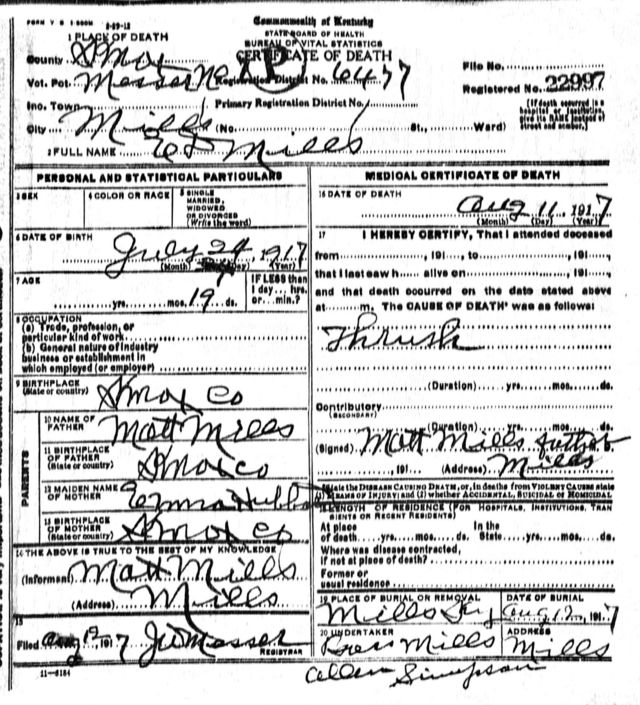 FORM V S 1 500M 8-29-12
Commonwealth of Kentucky
STATE BOARD OF HEALTH
BUREAU OF VITAL STATISTICS
CERTIFICATE OF DEATH
1 PLACE OF DEATH
County Knox
Vot. Pct. Messer No Registration District No. 6477
File No.
Registered No. 22997
Inc. Town Primary Registration District No.
City Mills (No. St., Ward)
(If death occurred in a hospital or institution, give its NAME instead of street and number.)
2 FULL NAME Ed Mills
PERSONAL AND STATISTICAL PARTICULARS
3 SEX
4 COLOR OR RACE
5 SINGLE MARRIED, WIDOWED OR DIVORCED (Write the word)
6 DATE OF BIRTH July 24, 1917
(Month) (Day) (Year)
7 AGE
yrs. mos. 19 ds.
IF LESS than 1 day... hrs. or... min.?
8 OCCUPATION
(a) Trade, profession, or
particular kind of work
(b) General nature of industry
business or establishment in
which employed (or employer)
9 BIRTHPLACE
(State or country) Knox Co
PARENTS
10 NAME OF FATHER Matt Mills
11 BIRTHPLACE OF FATHER
(State or country) Knox co
12 MAIDEN NAME OF MOTHER Emma Hubbs
13 BIRTHPLACE OF MOTHER
(State or country) Knox Co
14 THE ABOVE IS TRUE TO THE BEST OF MY KNOWLEDGE
(Informant) Matt Mills
(Address) Mills
15
Filed Aug 12 1917 Messer
REGISTRAR
11-3184
MEDICAL CERTIFICATE OF DEATH
16 DATE OF DEATH
Aug 11, 1917
(Month) (Day) (Year)
17 I HEREBY CERTIFY, That I attended deceased
from , 191 , to , 191 ,
that I last saw h alive on , 191 ,
and that death occurred on the date stated above
at m. The CAUSE OF DEATH* was as follows:
Thrush
(Duration) yrs. mos. ds.
Contributory
(SECONDARY)
(Duration) yrs. mos. ds.
(Signed) Matt Mills father
, 191 (Address) Mills
*State the DISEASE CAUSING DEATH, or, in deaths from VIOLENT CAUSES state
(1) MEANS OF INJURY; and (2) whether ACCIDENTAL, SUICIDAL or HOMICIDAL
18 LENGTH OF RESIDENCE (FOR HOSPITALS, INSTITUTIONS, TRANSIENTS OR RECENT RESIDENTS)
At place of death yrs. mos. ds. In the State yrs. mos. ds.
Where was disease contracted,
if not at place of death?
Former or
usual residence
19 PLACE OF BURIAL OR REMOVAL DATE OF BURIAL
Mills Ky Aug 12, 1917
20 UNDERTAKER ADDRESS
Mills Mills
Simpson